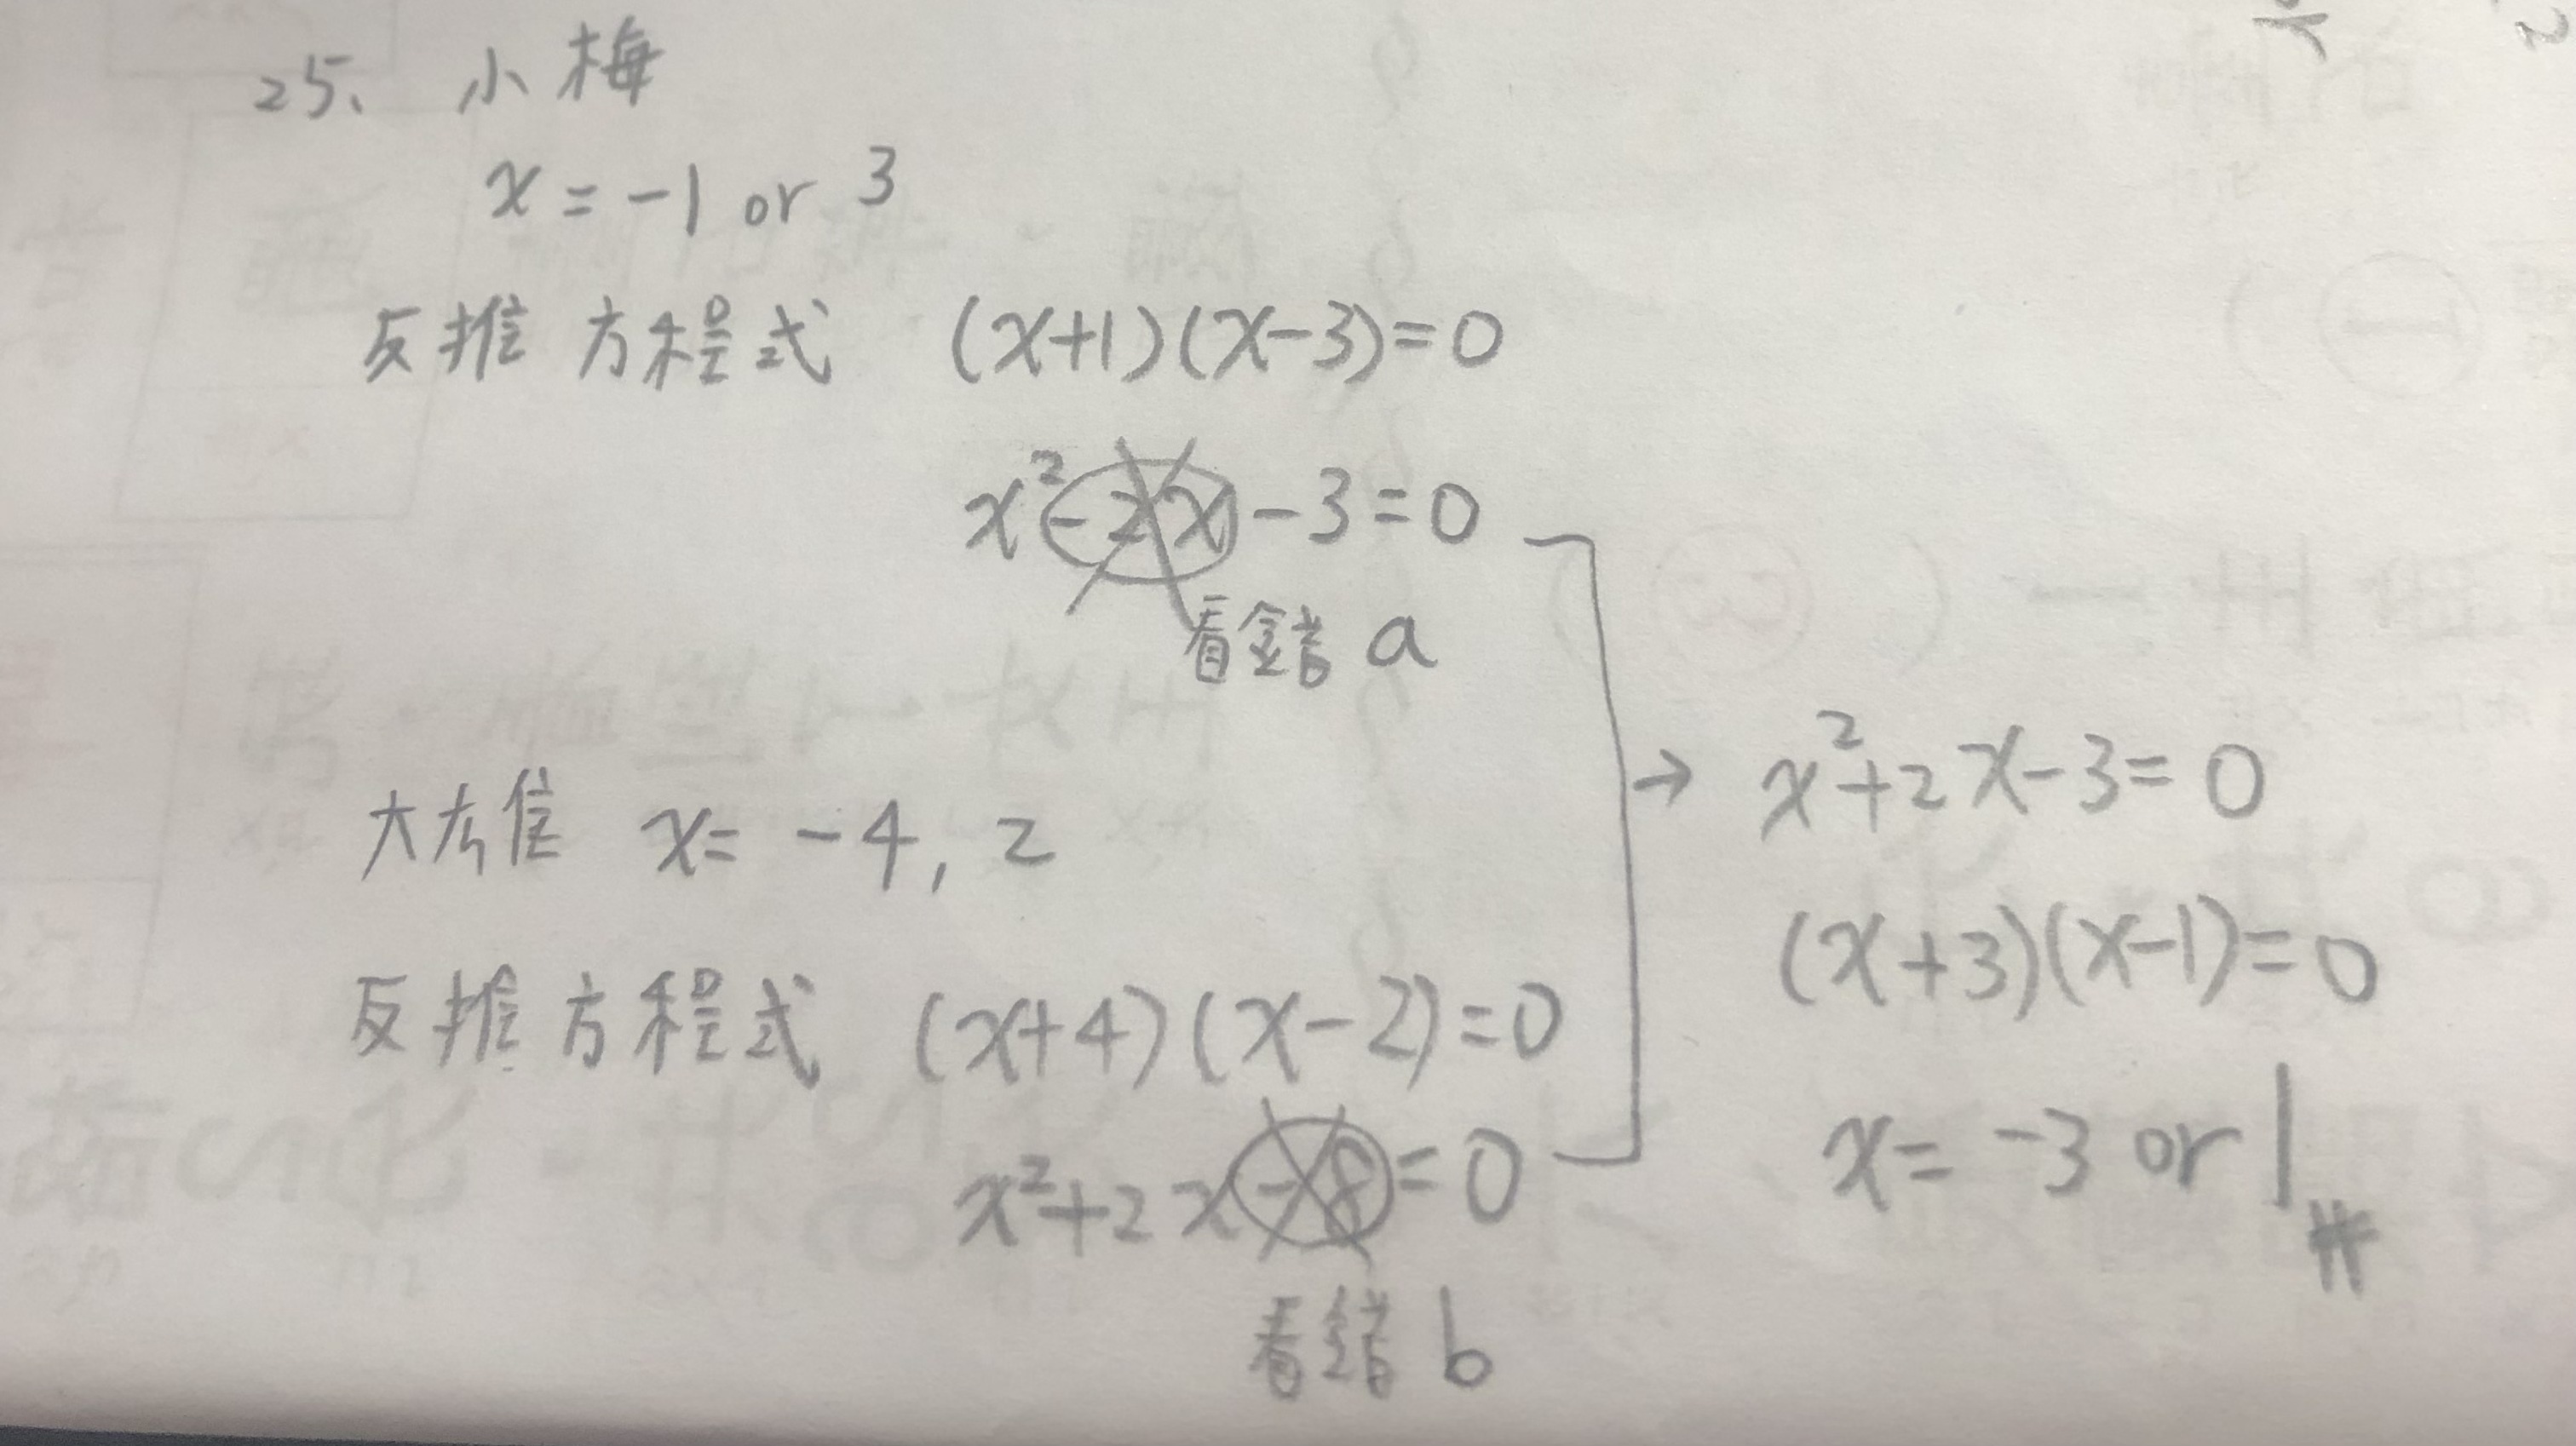 25、小梅
x = -1 or 3
反推方程式 (x+1)(x-3)=0
x²-2x-3=0
看錯 a
x= -4, 2
反推方程式 (x+4)(x-2)=0
x²+2x-8=0
看錯 b
→ x²+2x-3=0
(x+3)(x-1)=0
x= -3 or 1 #